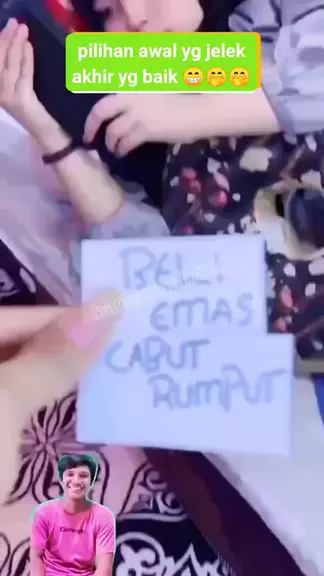 pilihan awal yg jelek
akhir yg baik 😁🤭🤭
BELI
EMAS
CABUT
RUMPUT